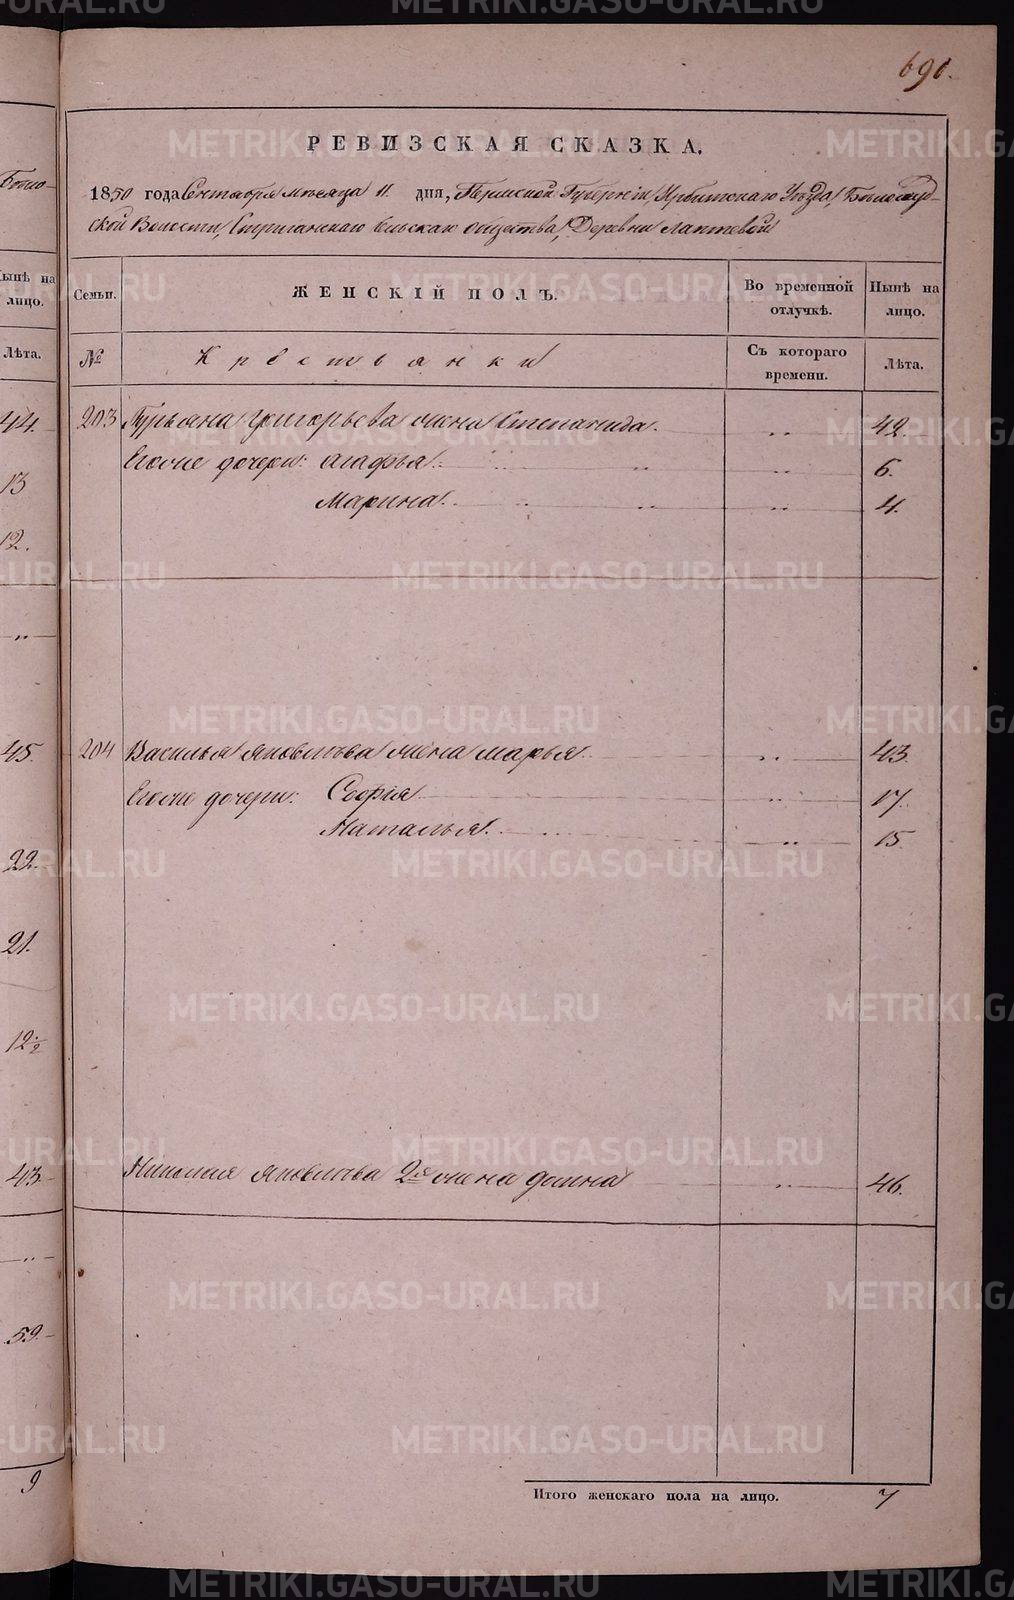 690.
РЕВИЗСКАЯ СКАЗКА.
1850 года Сентября месяца 11 дня, Пермской Губернiи Ирбитскаго Уѣзда Бѣлослуд-
ской Волости, Стриганскаго сельскаго общества, Деревни Лаптевой
Семьи. ЖЕНСКIЙ ПОЛЪ. Во временной отлучкѣ. Нынѣ на лицо.
№ Крестьянки Съ котораго времени. Лѣта.
203 Гурьяна Григорьева жена Степанида. „ 42.
Егоже дочери: Агафья. „ „ 6.
Марина. „ „ „ 4.
204 Василья Яковлева жена Марья. „ 43.
Егоже дочери: София „ 17.
Наталья. „ 15.
Николая Яковлева 2я жена Домна „ 46.
Итого женскаго пола на лицо. 7
Нынѣ на лицо.
Лѣта.
44.
13
12.
„
45.
22.
21.
12½
43.
„
59.
9
METRIKI.GASO-URAL.RU